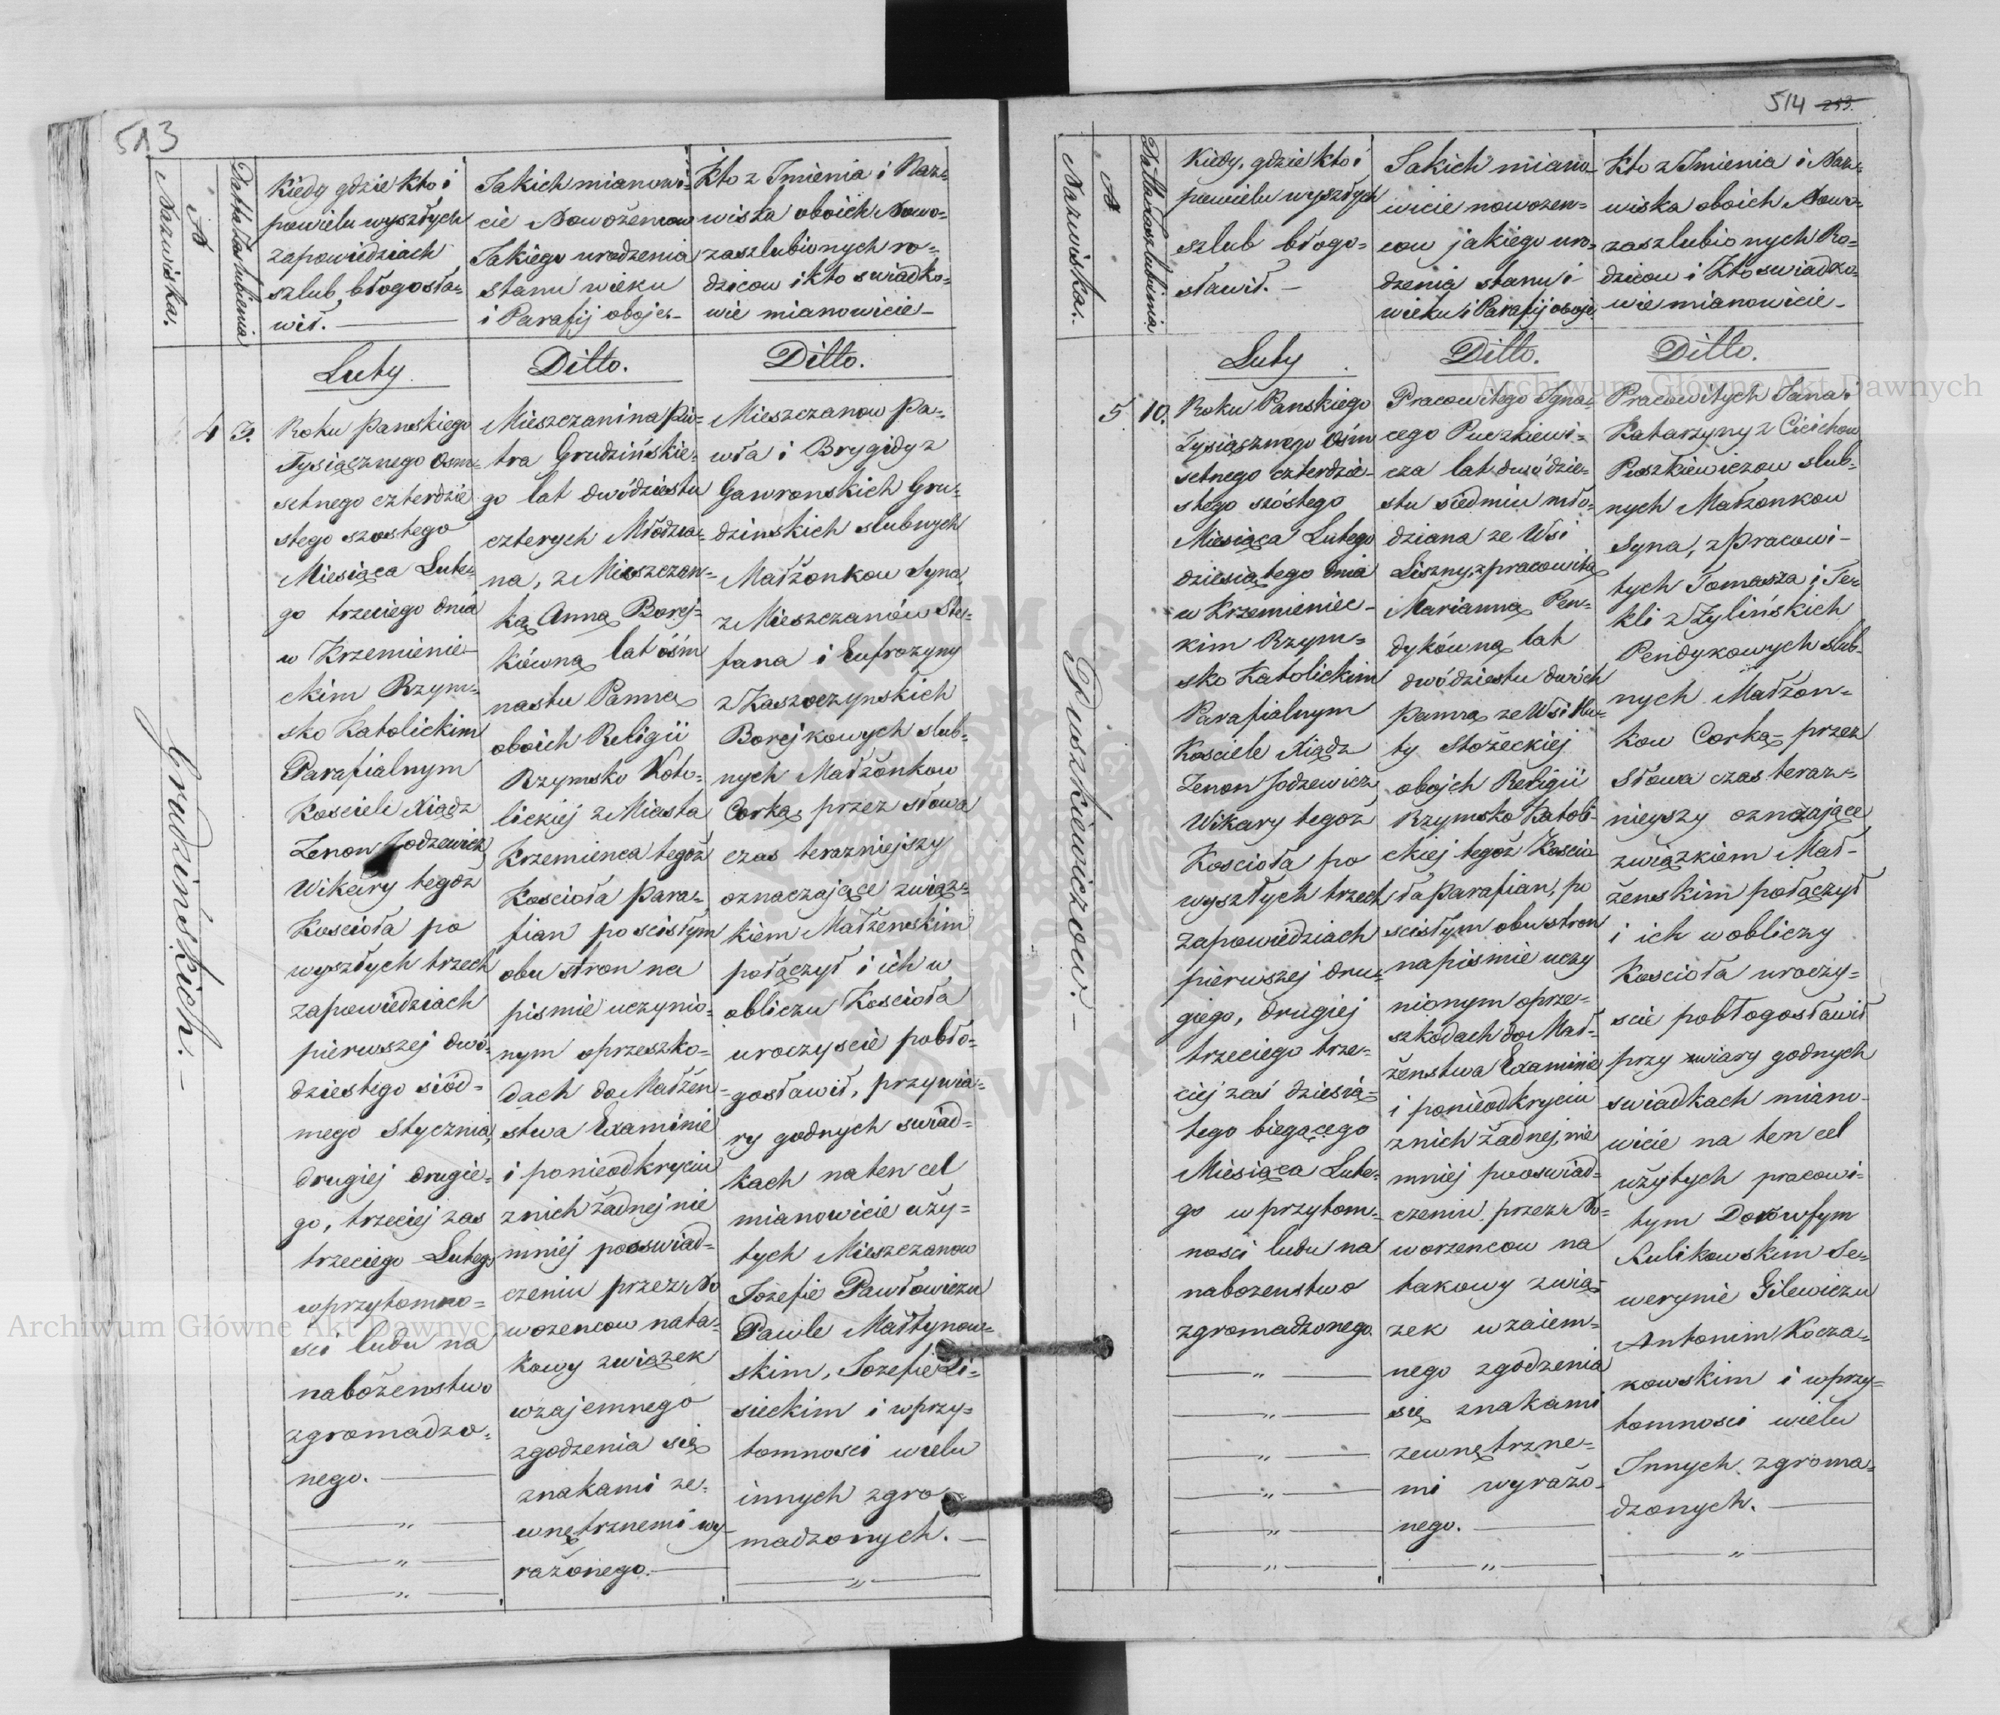 513
Nazwiska.
№
Datta zaslubienia
Kiedy gdzie kto i
powielu wyszłych
zapowiedziach
szlub błogosła-
wił.
Jakich mianowi-
cie Nowożeńcow
Jakiego urodzenia
stanu wieku
i Parafij obojei-
Kto z Imienia i Naz-
wiska oboich Nowo-
zaszlubionych ro-
dzicow i kto swiadko-
wie mianowicie-
Luty.
Ditto.
Ditto.
Grudzińskich.-
4
3.
Roku Panskiego
Tysiącznego Osm-
setnego czterdzie
stego szostego
Miesiąca Lute-
go trzeciego dnia
w Krzemienie-
ckim Rzym-
sko Katolickim
Parafialnym
Kosciele Xiądz
Zenon Jodzewicz
Wikary tegoż
Kosciola po
wyszłych trzech
zapowiedziach
pierwszej dwó-
dziestego siód-
mego Stycznia,
drugiej drugie-
go, trzeciej zas
trzeciego Lutego
w przytomno-
sci ludu na
nabożenstwo
zgromadzo-
nego.
Mieszczanina Pio-
tra Grudzińskie-
go lat dwódziestu
czterych Młodzia-
na, z Mieszczan-
ką Anną Borej-
kówną lat óśm
nastu Panną
oboich Religii
Rzymsko Kato-
lickiej z Miasta
Krzemienca tegoż
Kosciola para-
fian po scisłym
obu stron na
pismie uczynio-
nym o przeszko-
dach do Małżen-
stwa Examinie
i po nieodkryciu
z nich żadnej nie
mniej po oswiad-
czeniu przez No
wożencow na ta-
kowy związek
wzajemnego
zgodzenia się
znakami ze-
wnętrznemi wy-
rażonego.-
Mieszczanow Pa-
wła i Brygidy z
Gawronskich Gru-
dzinskich slubnych
Małżonkow Syna,
z Mieszczanów Ste-
fana i Eufrozyny
z Kaszoczynskich
Borejkowych slub-
nych Małżonkow
Corką, przez słowa
czas terazniejszy
oznaczające związ-
kiem Małżenskim
połączył i ich w
obliczu Kosciola
uroczyscie pobło-
gosławił, przy wia-
ry godnych swiad-
kach na ten cel
mianowicie uży-
tych Mieszczanow
Jozefie Pawłowiczu
Pawle Małtynow-
skim, Jozefie Li-
sieckim i w przy-
tomnosci wielu
innych zgro-
madzonych.-
514 253.
Nazwiska.
№
Datta zaszlubienia
Kiedy, gdzie kto i
powielu wyszłych
szlub błogo-
sławił.-
Jakich miano-
wicie nowożen-
cow jakiego uro-
dzenia stanu i
wieku i Parafij oboje
Kto z Imienia i Naz-
wiska oboich Nowo-
zaszlubionych Ro-
dzicow i Kto swiadko-
wie mianowicie-
Luty
Ditto.
Ditto.
Puszkiewiczow.-
5
10.
Roku Panskiego
Tysiącznego Osm
setnego czterdzie-
stego szóstego
Miesiąca Lutego
dziesiątego dnia
w Krzemieniec-
kim Rzym-
sko Katolickim
Parafialnym
Kosciele Xiądz
Zenon Jodzewicz
Wikary tegoż
Kosciola po
wyszłych trzech
zapowiedziach
pierwszej dru-
giego, drugiej
trzeciego trze-
ciej zas dziesią-
tego biegącego
Miesiąca Lute-
go w przytom-
nosci ludu na
nabozenstwo
zgromadzonego.
Pracowitego Igna-
cego Puszkiewi-
cza lat dwódzie-
stu siedmiu mło-
dziana ze Wsi
Liszny, z pracowitą
Marianną Pen-
dykówną lat
dwódziestu dwóch
panną ze Wsi Hu-
ty Stożeckiej
oboich Religii
Rzymsko Katoli-
ckiej tegoż Koscio
ła parafian, po
scisłym obu stron
na pismie uczy
nionym o prze-
szkodach do Mał-
żenstwa Examinie
i po nieodkryciu
z nich żadnej, nie
mniej po oswiad-
czeniu przez No-
worzencow na
takowy zwią-
zek wzaiem-
nego zgodzenia
się znakami
zewnętrzne-
mi wyrażo-
nego.
Pracowitych Jana i
Katarzyny z Cicichow
Puszkiewiczow slub-
nych Małżonkow
Syna, z Pracowi-
tych Tomasza i Te-
kli z Żylińskich
Pendykowych slub-
nych Małżon-
kow Corką- przez
Słowa czas teraz-
nieyszy oznaczające
związkiem Mał-
żenskim połączył
i ich w obliczy
Kosciola uroczy-
scie pobłogosławił
przy wiary godnych
swiadkach miano-
wicie na ten cel
użytych pracowi-
tym
Kulikowskim Se-
werynie Gilewiczu
Antonim Kocza-
kowskim i w przy-
tomnosci wielu
Innych zgroma-
dzonych.
Archiwum Główne Akt Dawnych
Archiwum Główne Akt Dawnych